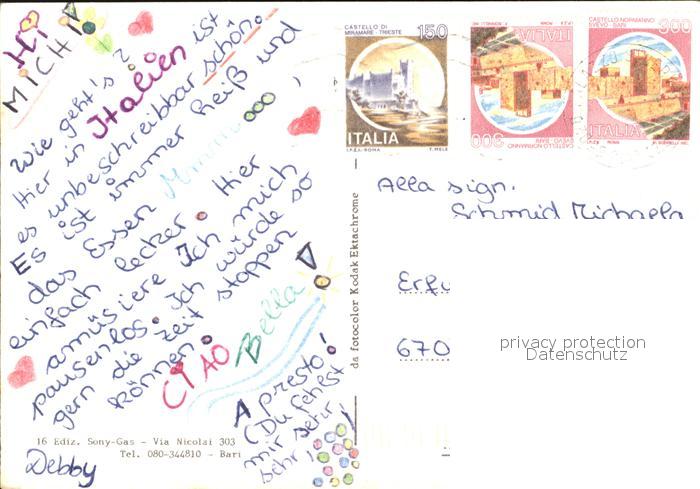 HI
MICHI!
Wie geht's?
Hier in Italien ist
es unbeschreibbar schön.
Es ist immer heiß und
das Essen Mmmmooo!
einfach lecker. Hier
amüsiere Ich mich
pausenlos. Ich würde so
gern die Zeit stoppen
können.
CIAO Bella!
A presto!
(Du fehlst
mir sehr,
sehr!)
16 Ediz. Sony-Gas - Via Nicolai 303
Tel. 080-344810 - Bari
Debby
da fotocolor Kodak Ektachrome
CASTELLO DI
MIRAMARE - TRIESTE
150
ITALIA
I.P.Z.S. - ROMA
T. MELE
CASTELLO NORMANNO
SVEVO - BARI
300
ITALIA
I.P.Z.S. ROMA
CASTELLO NORMANNO
SVEVO - BARI
300
ITALIA
I.P.Z.S. ROMA
Alla sign.
Schmid Michaela
Erfu
670
privacy protection
Datenschutz